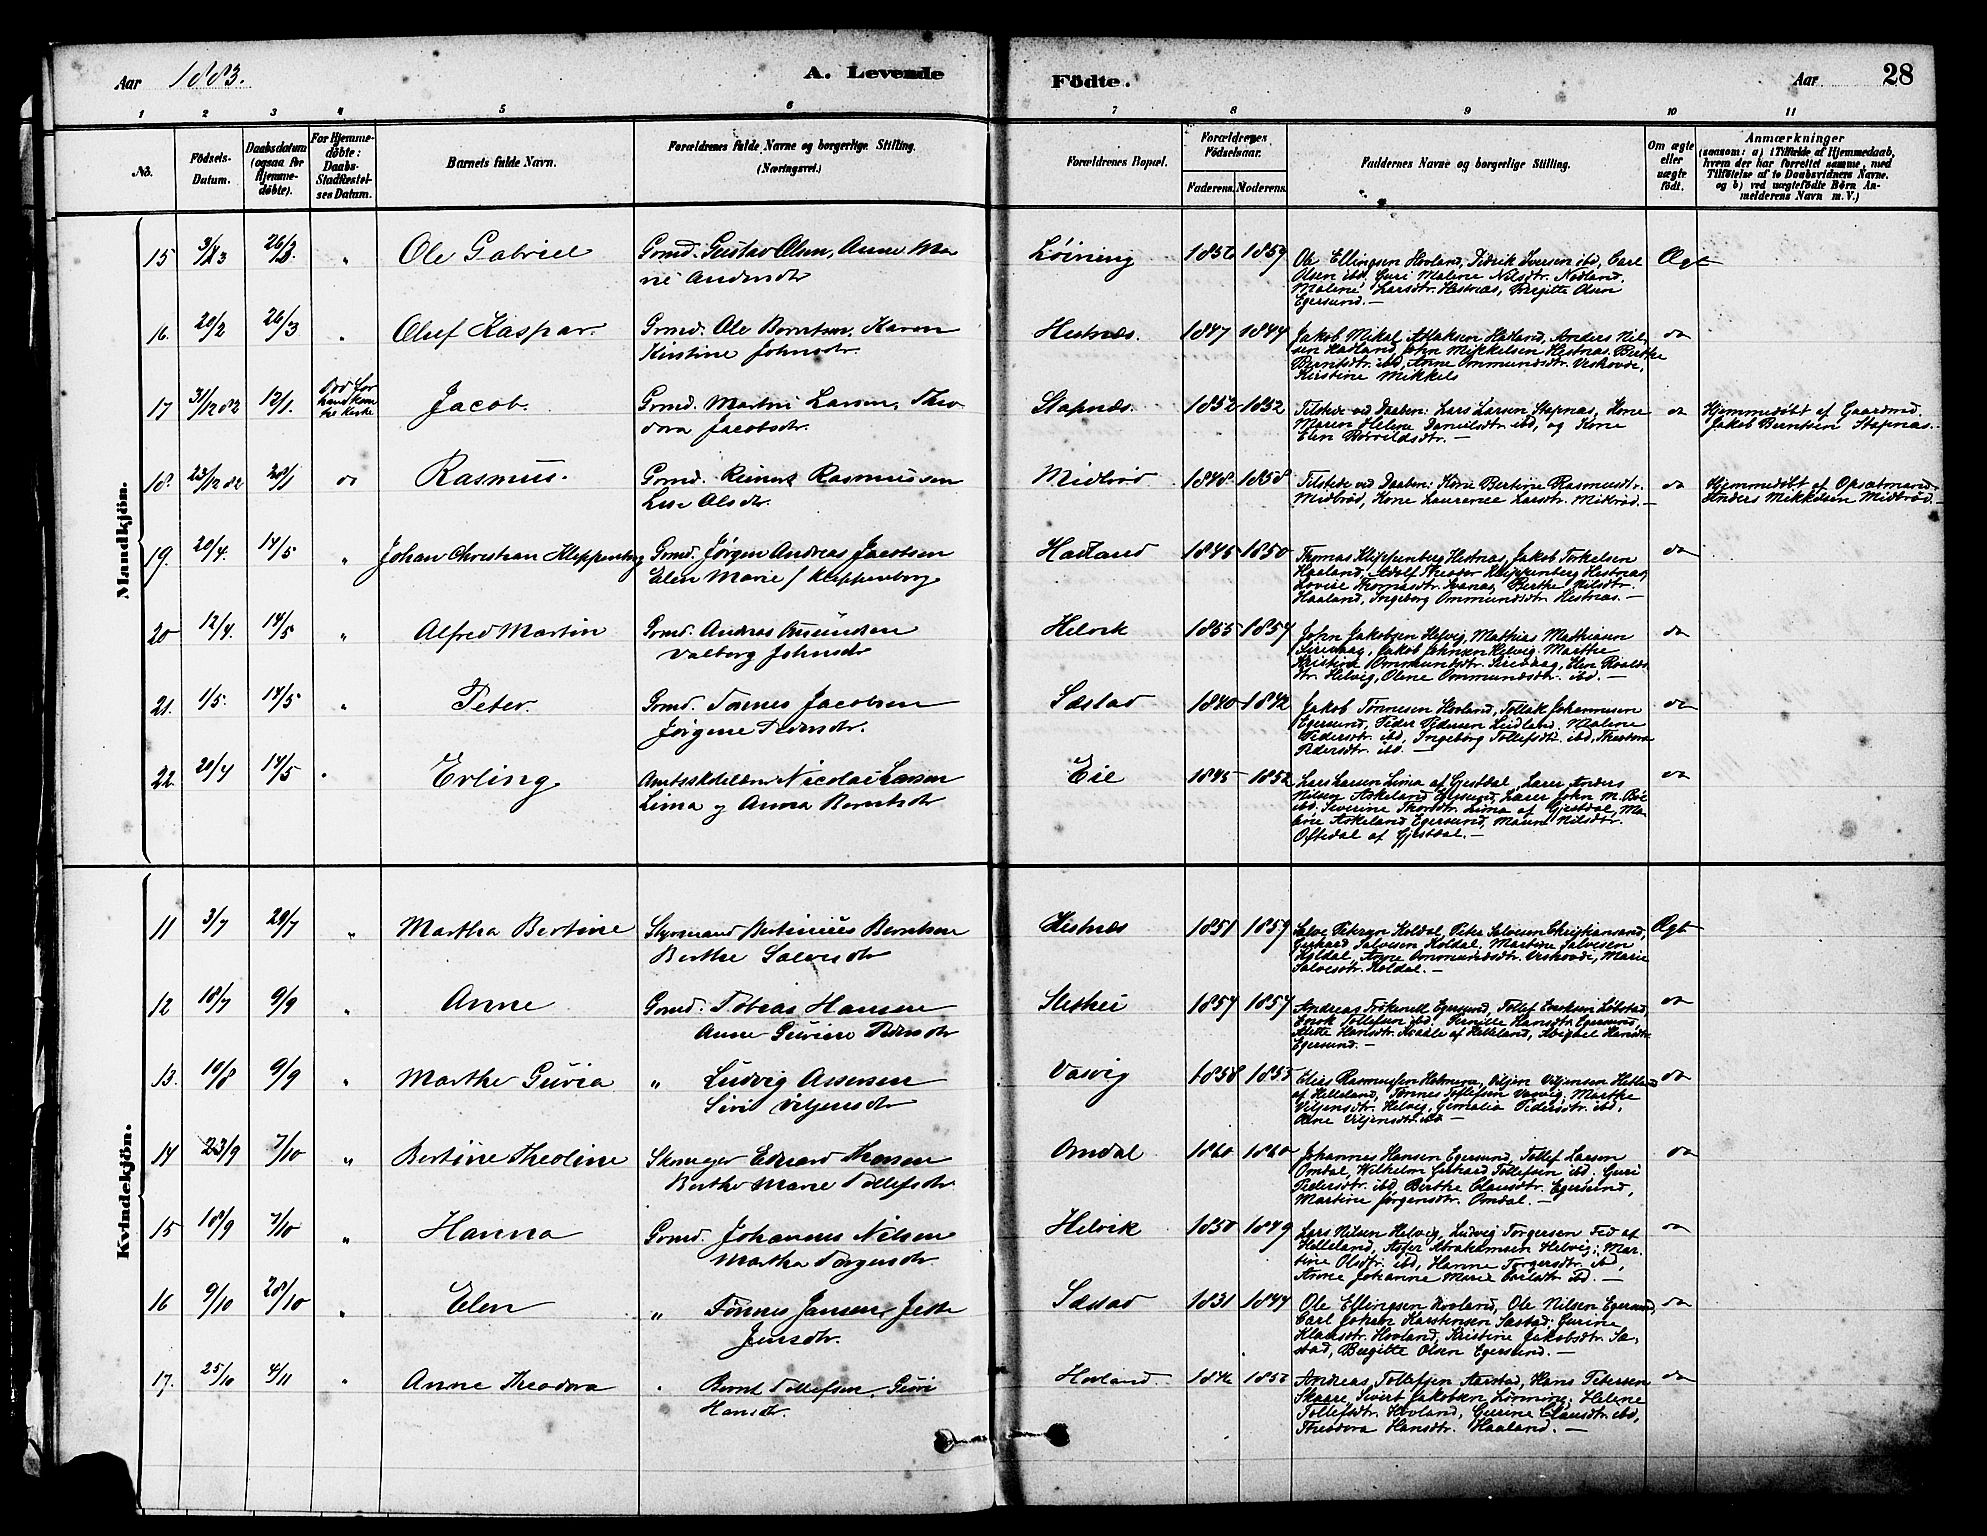 Aar 1883.
A. Levende
Födte.
Aar
28
1 2 3 4 5 6 7 8 9 10 11
No.
Födsels-Datum.
Daabsdatum (ogsaa for Hjemmedöbte).
For Hjemmedöbte: Daabs-Stadfæstelses Datum.
Barnets fulde Navn.
Forældrenes fulde Navne og borgerlige Stilling. (Næringsvei.)
Forældrenes Bopæl.
Forældrenes Födselsaar.
Faderens. Moderens.
Faddernes Navne og borgerlige Stilling.
Om ægte eller uægte födt.
Anmærkninger
(saasom: a) i Tilfælde af Hjemmedaab, hvem der har forrettet samme, med Tilföielse af to Daabsvidners Navne. og b) ved uægtefödte Börn Anmelderens Navn m. V.)
Mandkjön.
15 26/3. " Ole Gabriel Grmd. Gustav Olsen, Anne Ma
rie Andersdtr Löining 1856 1859 Ole Ellingsen Hovland, Didrik Iversen ibd, Carl
Olsen ibd, Guri Malene Nilsdtr. Nodland,
Malene Larsdtr. Hestnæs, Birgitte Olsen
Egersund.— Ægt
16. 20/2 26/3 " Oluf Kaspar. Grmd. Ole Berntsen, Karen
Kirstine Johnsdtr. Hestnæs. 1847 1844 Jakob Mikal Aslaksen Hadland, Anders Nil-
sen Hadland, John Mikkelsen Hestnæs. Berthe
Berntsdtr. ibd, Anne Ommundsdtr. Veshovde,
Kirstine Mikkels do
17 31/12 82 12/1. Jacob. Grmd. Martin Larsen, Theo
dora Jacobsdtr. Stapnæs. 1852 1852 Tilstede ved Daaben: Lars Larsen Stapnæs, Kone
Maren Helene Danielsdtr ibd, og Kone
Elen Roxvildsdtr.— do Hjemmedøbt af Gaardmd.
Jakob Berntsen Stapnæs.
18. 23/12 82 28/1 do Rasmus. Grmd. Reinert Rasmussen
Lise Olsdtr. Midbrød 1848 1858 Tilstede ved Daaben: Kone Bertine Rasmusdtr.
Midbrød, Kone Laurense Larsdtr. Midbrød.— do Hjemmedøbt af Opsætmand
Anders Mikkelsen Midbrød.—
19. 20/4. 14/5 " Johan Christian Kleppenberg Grmd. Jørgen Andreas Jacobsen
Elen Marie / Kleppenberg Hadland 1845 1850 Thomas Kleppenberg Hestnæs, Jakob Torkelsen
Haaland, Adolf Theodor Kleppenberg Hestnæs,
Lovise Thomasdtr. Svanes, Berthe Nilsdtr.
Haaland, Ingeborg Ommundsdtr. Hestnæs.— do
20 12/4. 14/5 " Alfred Martin Grmd. Andreas Amundsen
Valborg Johnsdtr Helvik 1855 1857 John Jakobsen Helvig, Mathias Mathiasen
Sirevaag, Jakob Johnsen Helvig. Marthe
Kristine Ommundsdtr. Sirevaag, Elen Roalds
dtr. Helvig, Olene Ommundsdtr. ibd.— do
21. 1/5. 14/5 " Peter. Grmd. Tønnes Jacobsen
Jørgine Pedersdtr. Sæstad 1840 1842 Jakob Tønnesen Hovland, Tollak Johannesen
Egersund, Peder Pedersen Ludland. Malene
Pedersdtr. ibd, Ingeborg Tollefsdtr. ibd, Theodora
Pedersdtr. ibd.— do
22. 20/4 14/5 " Erling Amtsskolelærer Nicolai Larsen
Lima og Anna Berntsdtr Eie 1845 1852 Lars Larsen Lima af Gjestdal, Lærer Anders
Nilsen Askeland Egersund, Lærer John M. Bøe
ibd, Severine Thorsdtr. Lima af Gjestdal, Ma-
lene Askeland Egersund, Maren Nilsdtr.
Oftedal af Gjestdal.— do
Kvindekjön.
11 3/7 29/7 " Martha Bertine Styrmand Bertinius Berntsen
Berthe Salvesdtr Hestnæs 1851 1859 Salve Koldal, Peter Salvesen Christiansand,
Gerhard Salvesen Koldal. Martine Salvesen
Koldal, Anne Ommundsdtr. Veshovde, Marie
Salvesdtr. Koldal.— Ægt
12 18/7 9/9 " Anne Grmd. Tobias Hansen
Anne Gurine Pedersdtr Slethei 1857 1857 Andreas Egersund, Tollef
Tollefsen ibd. Pernille Hansdtr. Egersund,
Hansdtr. Kvaale af Helleland, Abigael Hansdtr.
Egersund.— do
13. 10/8 9/9 " Marthe Guria " Ludvig Assersen
Siri Viljensdtr Vasvig 1858 1855 Elias Rasmussen Holmen, Viljen Viljensen Hetland
af Helleland, Tønnes Tollefsen Vasvig, Marthe
Viljensdtr. Helvig, Cornelia Pedersdtr. ibd,
Anne Viljensdtr. ibd— do
14 23/9 7/10 " Bertine Theoline Skomager Edvard Thorsen
Berthe Marie Tollefsdtr Omdal 1860 1860 Johannes Hansen Egersund, Tollef Larsen
Omdal, Wilhelm Gerhard Tollefsen ibd. Guri
Pedersdtr. ibd, Berthe Clausdtr. Egersund,
Martine Jørgensdtr. Omdal.— do
15 18/9 7/10 " Hanna Grmd. Johannes Nilsen
Martha Torgersdtr. Helvik 1850 1849 Lars Nilsen Helvig, Ludvig Torgersen Fed af
Helleland, Asser Abrahamsen Helvig; Mar-
tine Olsdtr. ibd, Hanne Torgersdtr. ibd,
Anne Johanne Marie Carlsdtr ibd.— do
16 9/10 28/10 " Elen " Tønnes Jansen, Jette
Jensdtr. Sæstad 1831 1844 Ole Ellingsen Hovland, Ole Nilsen Egersund,
Carl Johan Karstensen Sæstad. Gurine
Klausdtr. Hovland, Kristine Jakobsdtr. Sæ-
stad, Birgitte Olsen Egersund.— do
17. 25/10 4/11 " Anne Theodora " Bernt Tollefsen Guri
Hansdtr. Hovland 1846 1850 Andreas Tollefsen Aarstad, Hans Petersen
Skaare, Sivert Jakobsen Lönning; Helene
Tollefsdtr. Hovland, Gurine Clausdtr. ibd,
Theodora Hansdtr. Haaland.— do